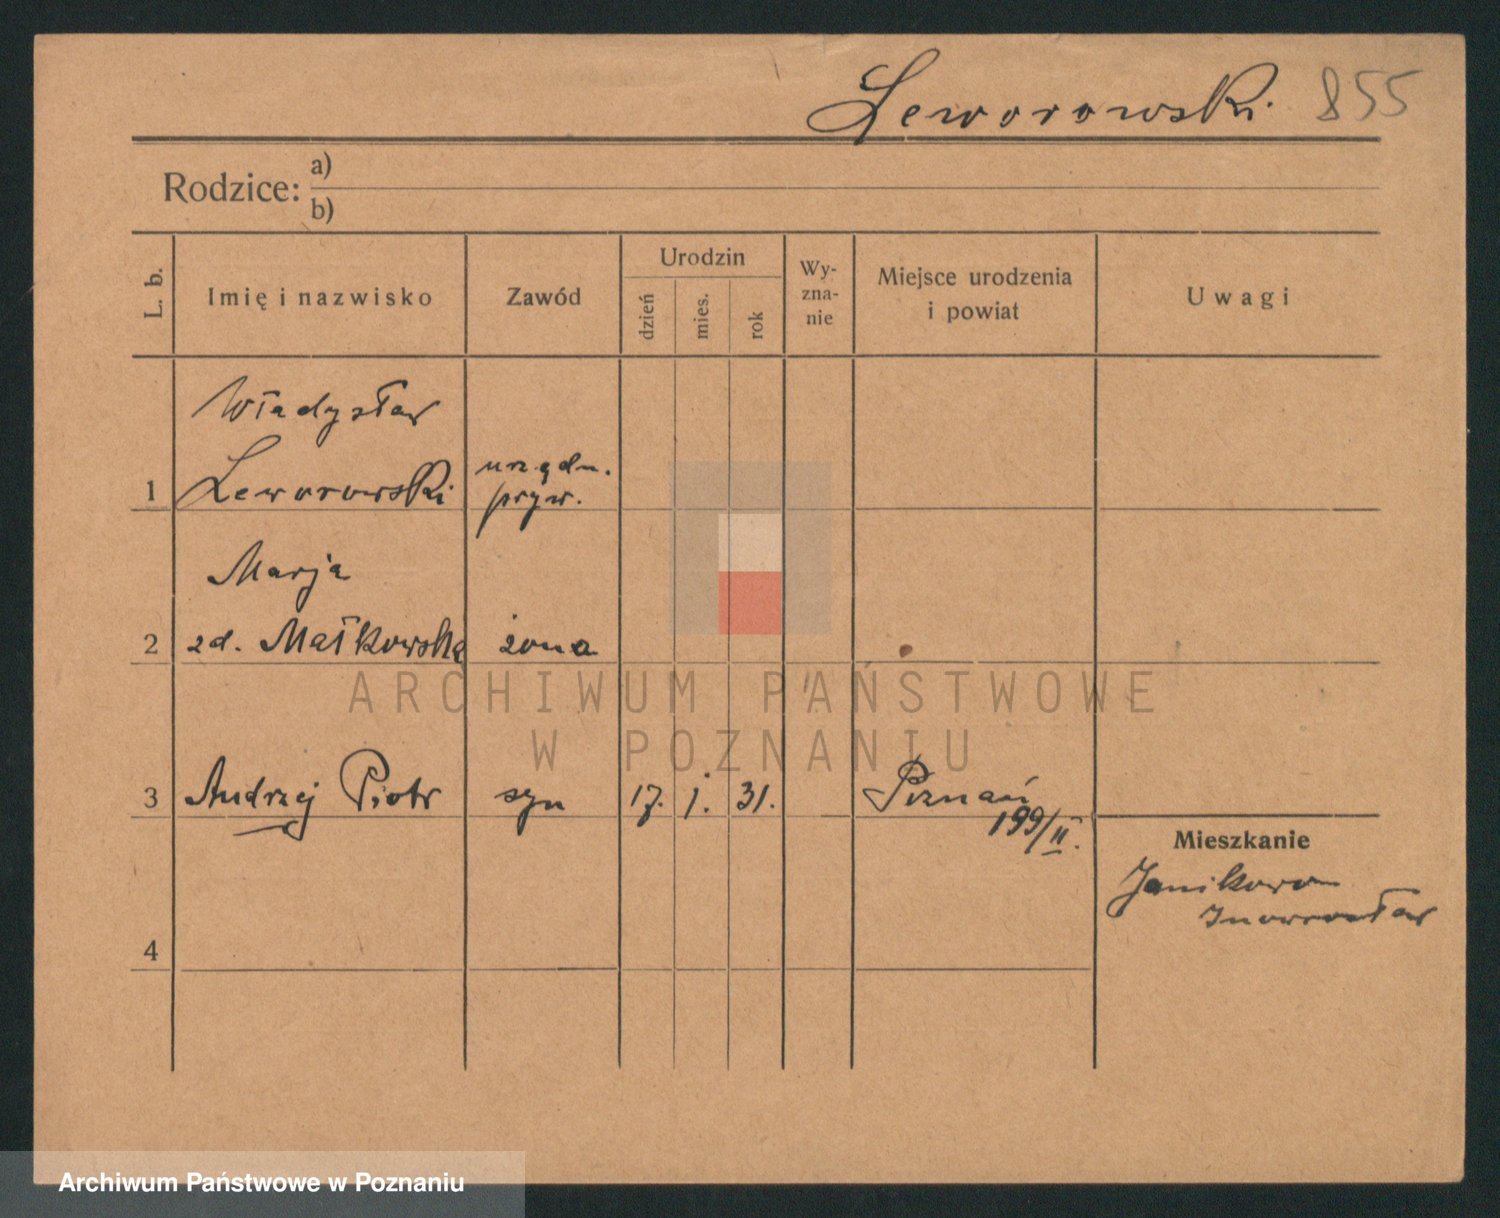 Leworowski 855
Rodzice: a)
b)
L. b.
Imię i nazwisko
Zawód
Urodzin
dzień
mies.
rok
Wy-
zna-
nie
Miejsce urodzenia
i powiat
Uwagi
Władysław
1 Leworowski
urzędn.
pryw.
Marja
2 zd. Małkowska żona
ARCHIWUM PAŃSTWOWE
W POZNANIU
3 Andrzej Piotr syn 17. 1. 31. Poznań
199/II.
Mieszkanie
Janikowo
Inowrocław
4
Archiwum Państwowe w Poznaniu